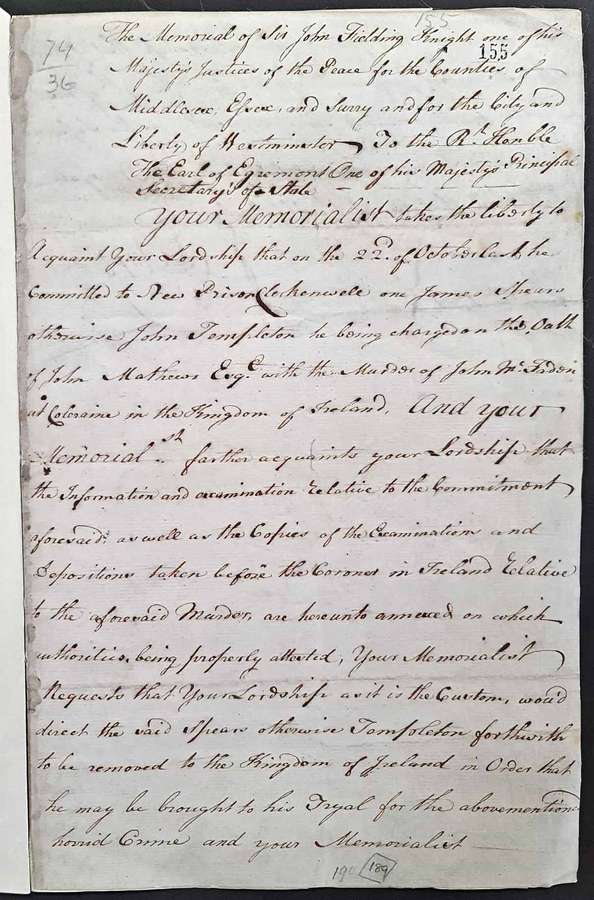 155
155
74
36
The Memorial of Sir John Fielding Knight one of his
Majesty's Justices of the Peace for the Counties of
Middlesex, Essex, and Surry and for the City and
Liberty of Westminster To the Rt. Honble
The Earl of Egremont One of his Majesty's Principal
Secretarys of State
Your Memorialist takes the liberty to
Acquaint Your Lordship that on the 22d. of October last, he
Committed to New Prison Clerkenwell one James Spears
otherwise John Templeton he being charged on the Oath
of John Mathews Esqr. with the Murder of John
at Coleraine in the Kingdom of Ireland. And your
Memorialst farther acquaints your Lordship that
the Information and examination Relative to the Commitment
aforesaid: as well as the Copies of the Examinations and
Depositions taken before the Coroner in Ireland Relative
to the aforesaid Murder, are hereunto annexed on which
authorities, being properly attested, Your Memorialist
Requests that Your Lordship as it is the Custom, wou'd
direct the said Spears otherwise Templeton forthwith
to be removed to the Kingdom of Ireland in Order that
he may be brought to his Tryal for the abovementiond
horrid Crime and your Memorialist
190 189